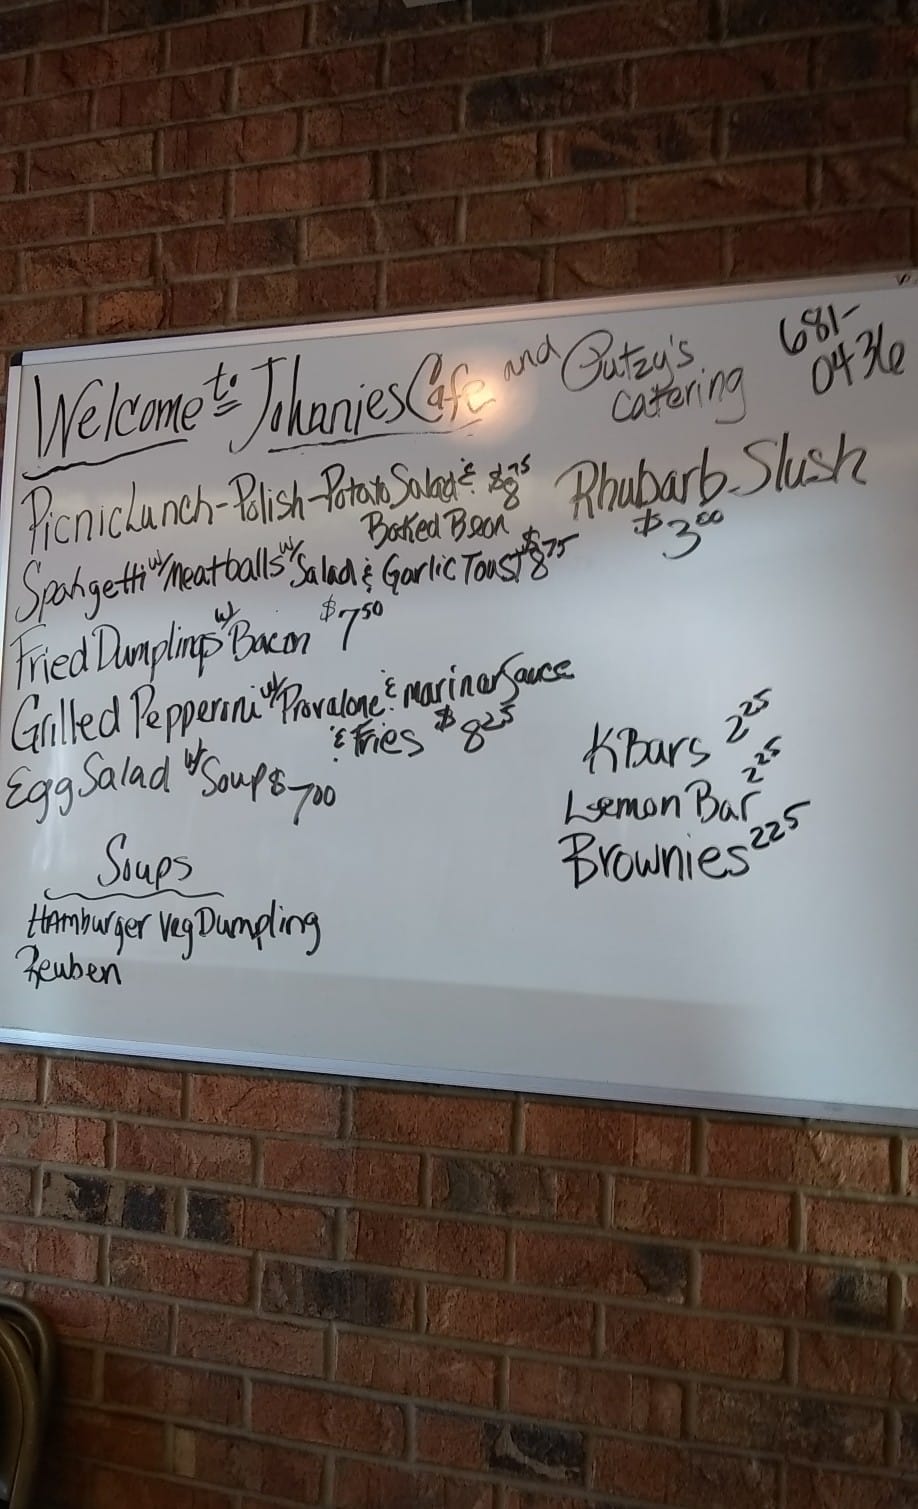 Welcome to Johanies Cafe and Putzy's
catering
681-
0436
Picnic Lunch-Polish-Potato Salad & $8.75
Baked Bean
Rhubarb Slush
$3.00
Spahgetti w/ Meatballs w/ Salad & Garlic Toast $8.75
Fried Dumplings w/ Bacon $7.50
Grilled Pepperoni w/ Provalone & marinar Sauce
& Fries $8.25
Egg Salad w/ Soup $7.00
K Bars 2.25
Lemon Bar 2.25
Brownies 2.25
Soups
Hamburger Veg Dumpling
Reuben